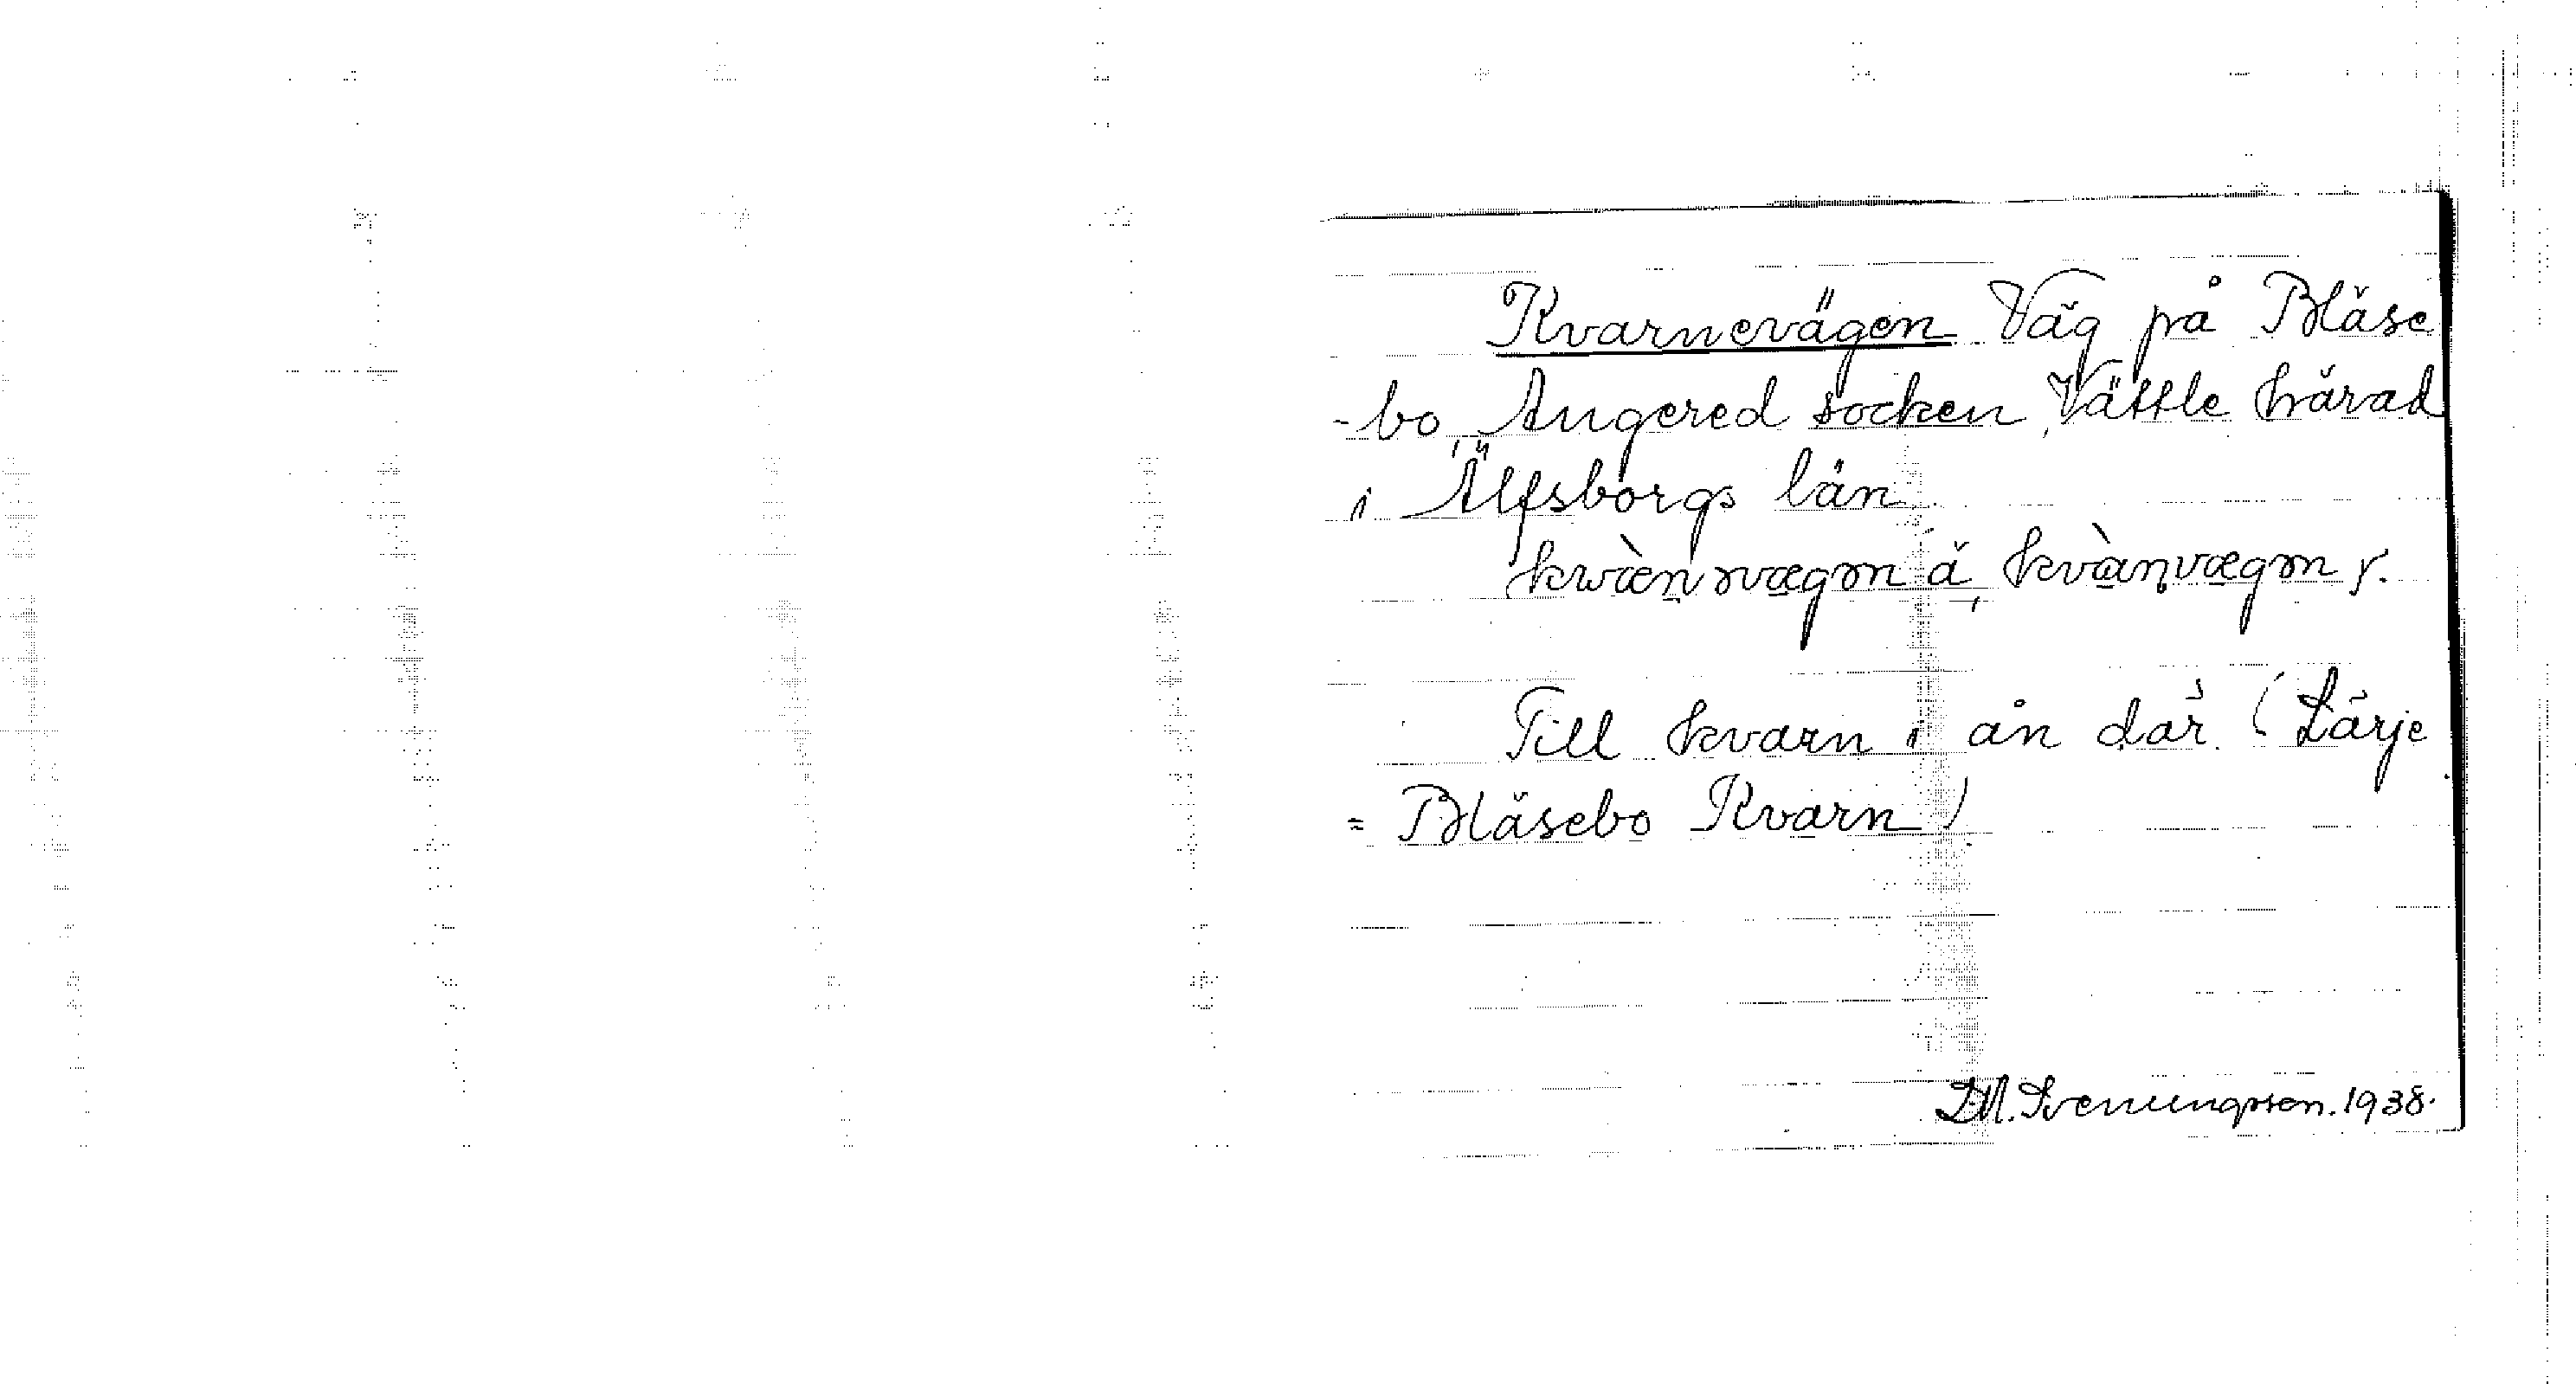 Kvarnevägen Väg på Bläse
-bo, Angered socken, Vättle härad
i Älfsborgs län
kwæ̀nəvægən å kvànvægən r.
Till kvarn i ån där (Lärje
= Bläsebo Kvarn)
D.M. Svenungsson. 1938.